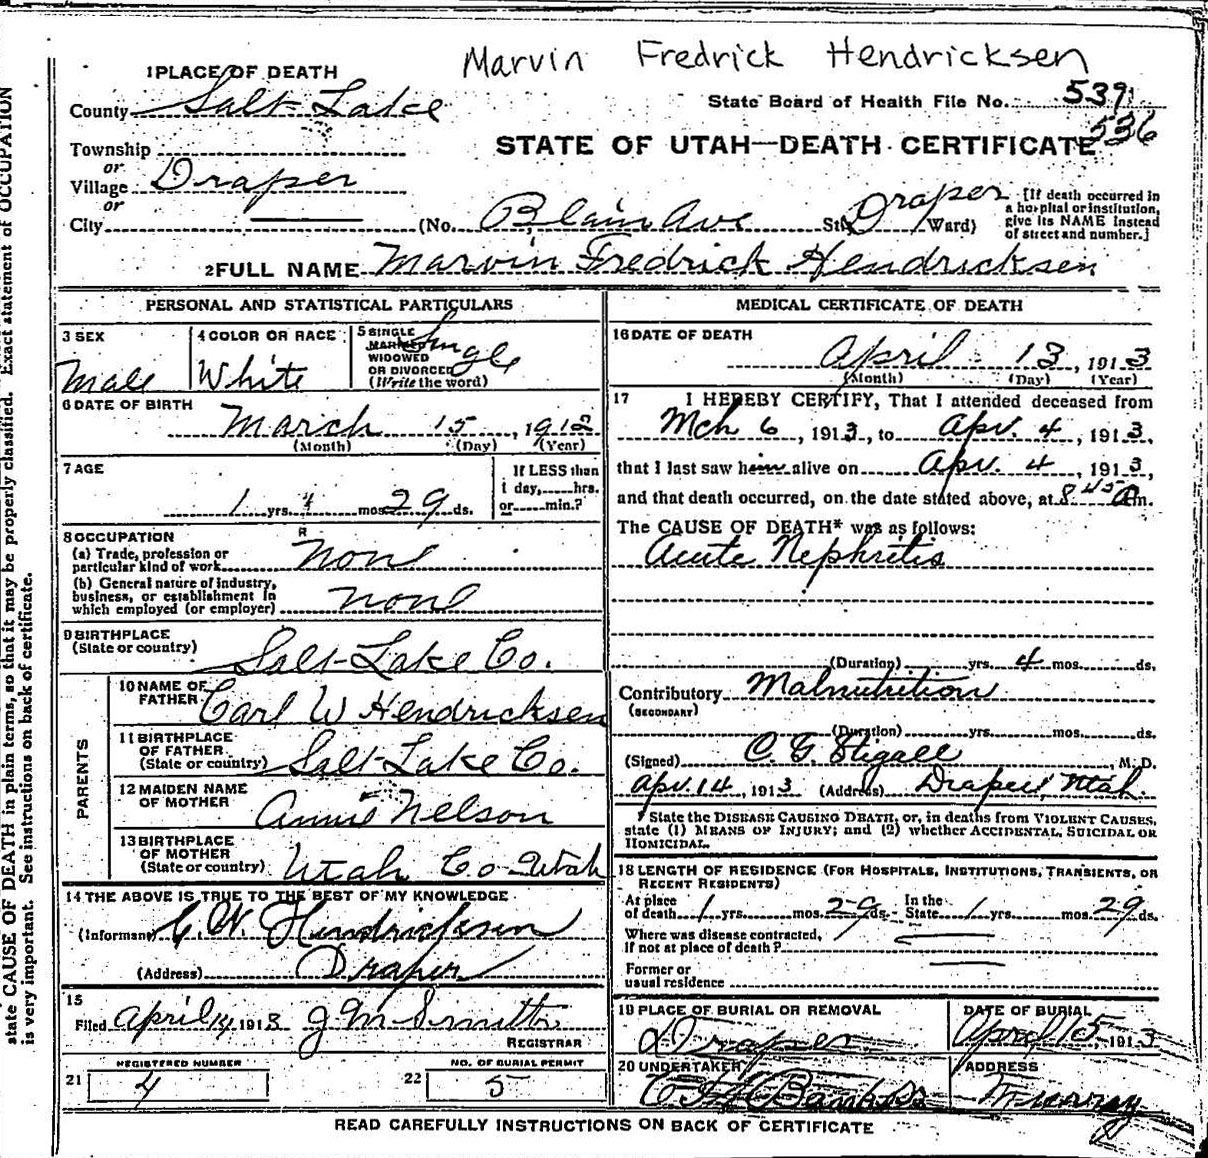 Marvin Fredrick Hendricksen
1 PLACE OF DEATH
County Salt Lake
State Board of Health File No. 539
536
STATE OF UTAH—DEATH CERTIFICATE
Township
or
Village Draper
or
City (No. Blain Ave St. Draper Ward)
[If death occurred in
a hospital or institution,
give its NAME instead
of street and number.]
2 FULL NAME Marvin Fredrick Hendricksen
PERSONAL AND STATISTICAL PARTICULARS
3 SEX
Male
4 COLOR OR RACE
White
5 SINGLE
MARRIED
WIDOWED
OR DIVORCED
(Write the word)
Single
6 DATE OF BIRTH
March 15, 1912
(Month) (Day) (Year)
7 AGE
1 yrs. 1 mos. 29 ds.
If LESS than
1 day, hrs.
or min.?
8 OCCUPATION
(a) Trade, profession or
particular kind of work none
(b) General nature of industry,
business, or establishment in
which employed (or employer) none
9 BIRTHPLACE
(State or country) Salt Lake Co.
PARENTS
10 NAME OF
FATHER Carl W Hendricksen
11 BIRTHPLACE
OF FATHER
(State or country) Salt Lake Co.
12 MAIDEN NAME
OF MOTHER Annie Nelson
13 BIRTHPLACE
OF MOTHER
(State or country) Utah Co. Utah
14 THE ABOVE IS TRUE TO THE BEST OF MY KNOWLEDGE
(Informant) C. W. Hendricksen
(Address) Draper
15
Filed April 14, 1913 J M Smith
REGISTRAR
21 REGISTERED NUMBER
4
22 NO. OF BURIAL PERMIT
5
MEDICAL CERTIFICATE OF DEATH
16 DATE OF DEATH
April 13, 1913
(Month) (Day) (Year)
17 I HEREBY CERTIFY, That I attended deceased from
Mch 6, 1913, to Apr. 4, 1913,
that I last saw him alive on Apr. 4, 1913,
and that death occurred, on the date stated above, at 8 45 A m.
The CAUSE OF DEATH* was as follows:
Acute Nephritis
(Duration) yrs. 4 mos. ds.
Contributory Malnutrition
(SECONDARY)
(Duration) yrs. mos. ds.
(Signed) C. G. Stigall, M. D.
Apr. 14, 1913 (Address) Draper, Utah.
* State the DISEASE CAUSING DEATH, or, in deaths from VIOLENT CAUSES,
state (1) MEANS OF INJURY; and (2) whether ACCIDENTAL, SUICIDAL OR
HOMICIDAL.
18 LENGTH OF RESIDENCE (FOR HOSPITALS, INSTITUTIONS, TRANSIENTS, OR
RECENT RESIDENTS)
At place
of death 1 yrs. mos. 29 ds. In the
State 1 yrs. mos. 29 ds.
Where was disease contracted,
If not at place of death?
Former or
usual residence
19 PLACE OF BURIAL OR REMOVAL
Draper
DATE OF BURIAL
April 15, 1913
20 UNDERTAKER
Banks
ADDRESS
Murray
READ CAREFULLY INSTRUCTIONS ON BACK OF CERTIFICATE
state CAUSE OF DEATH in plain terms, so that it may be properly classified. Exact statement of OCCUPATION
is very important. See instructions on back of certificate.